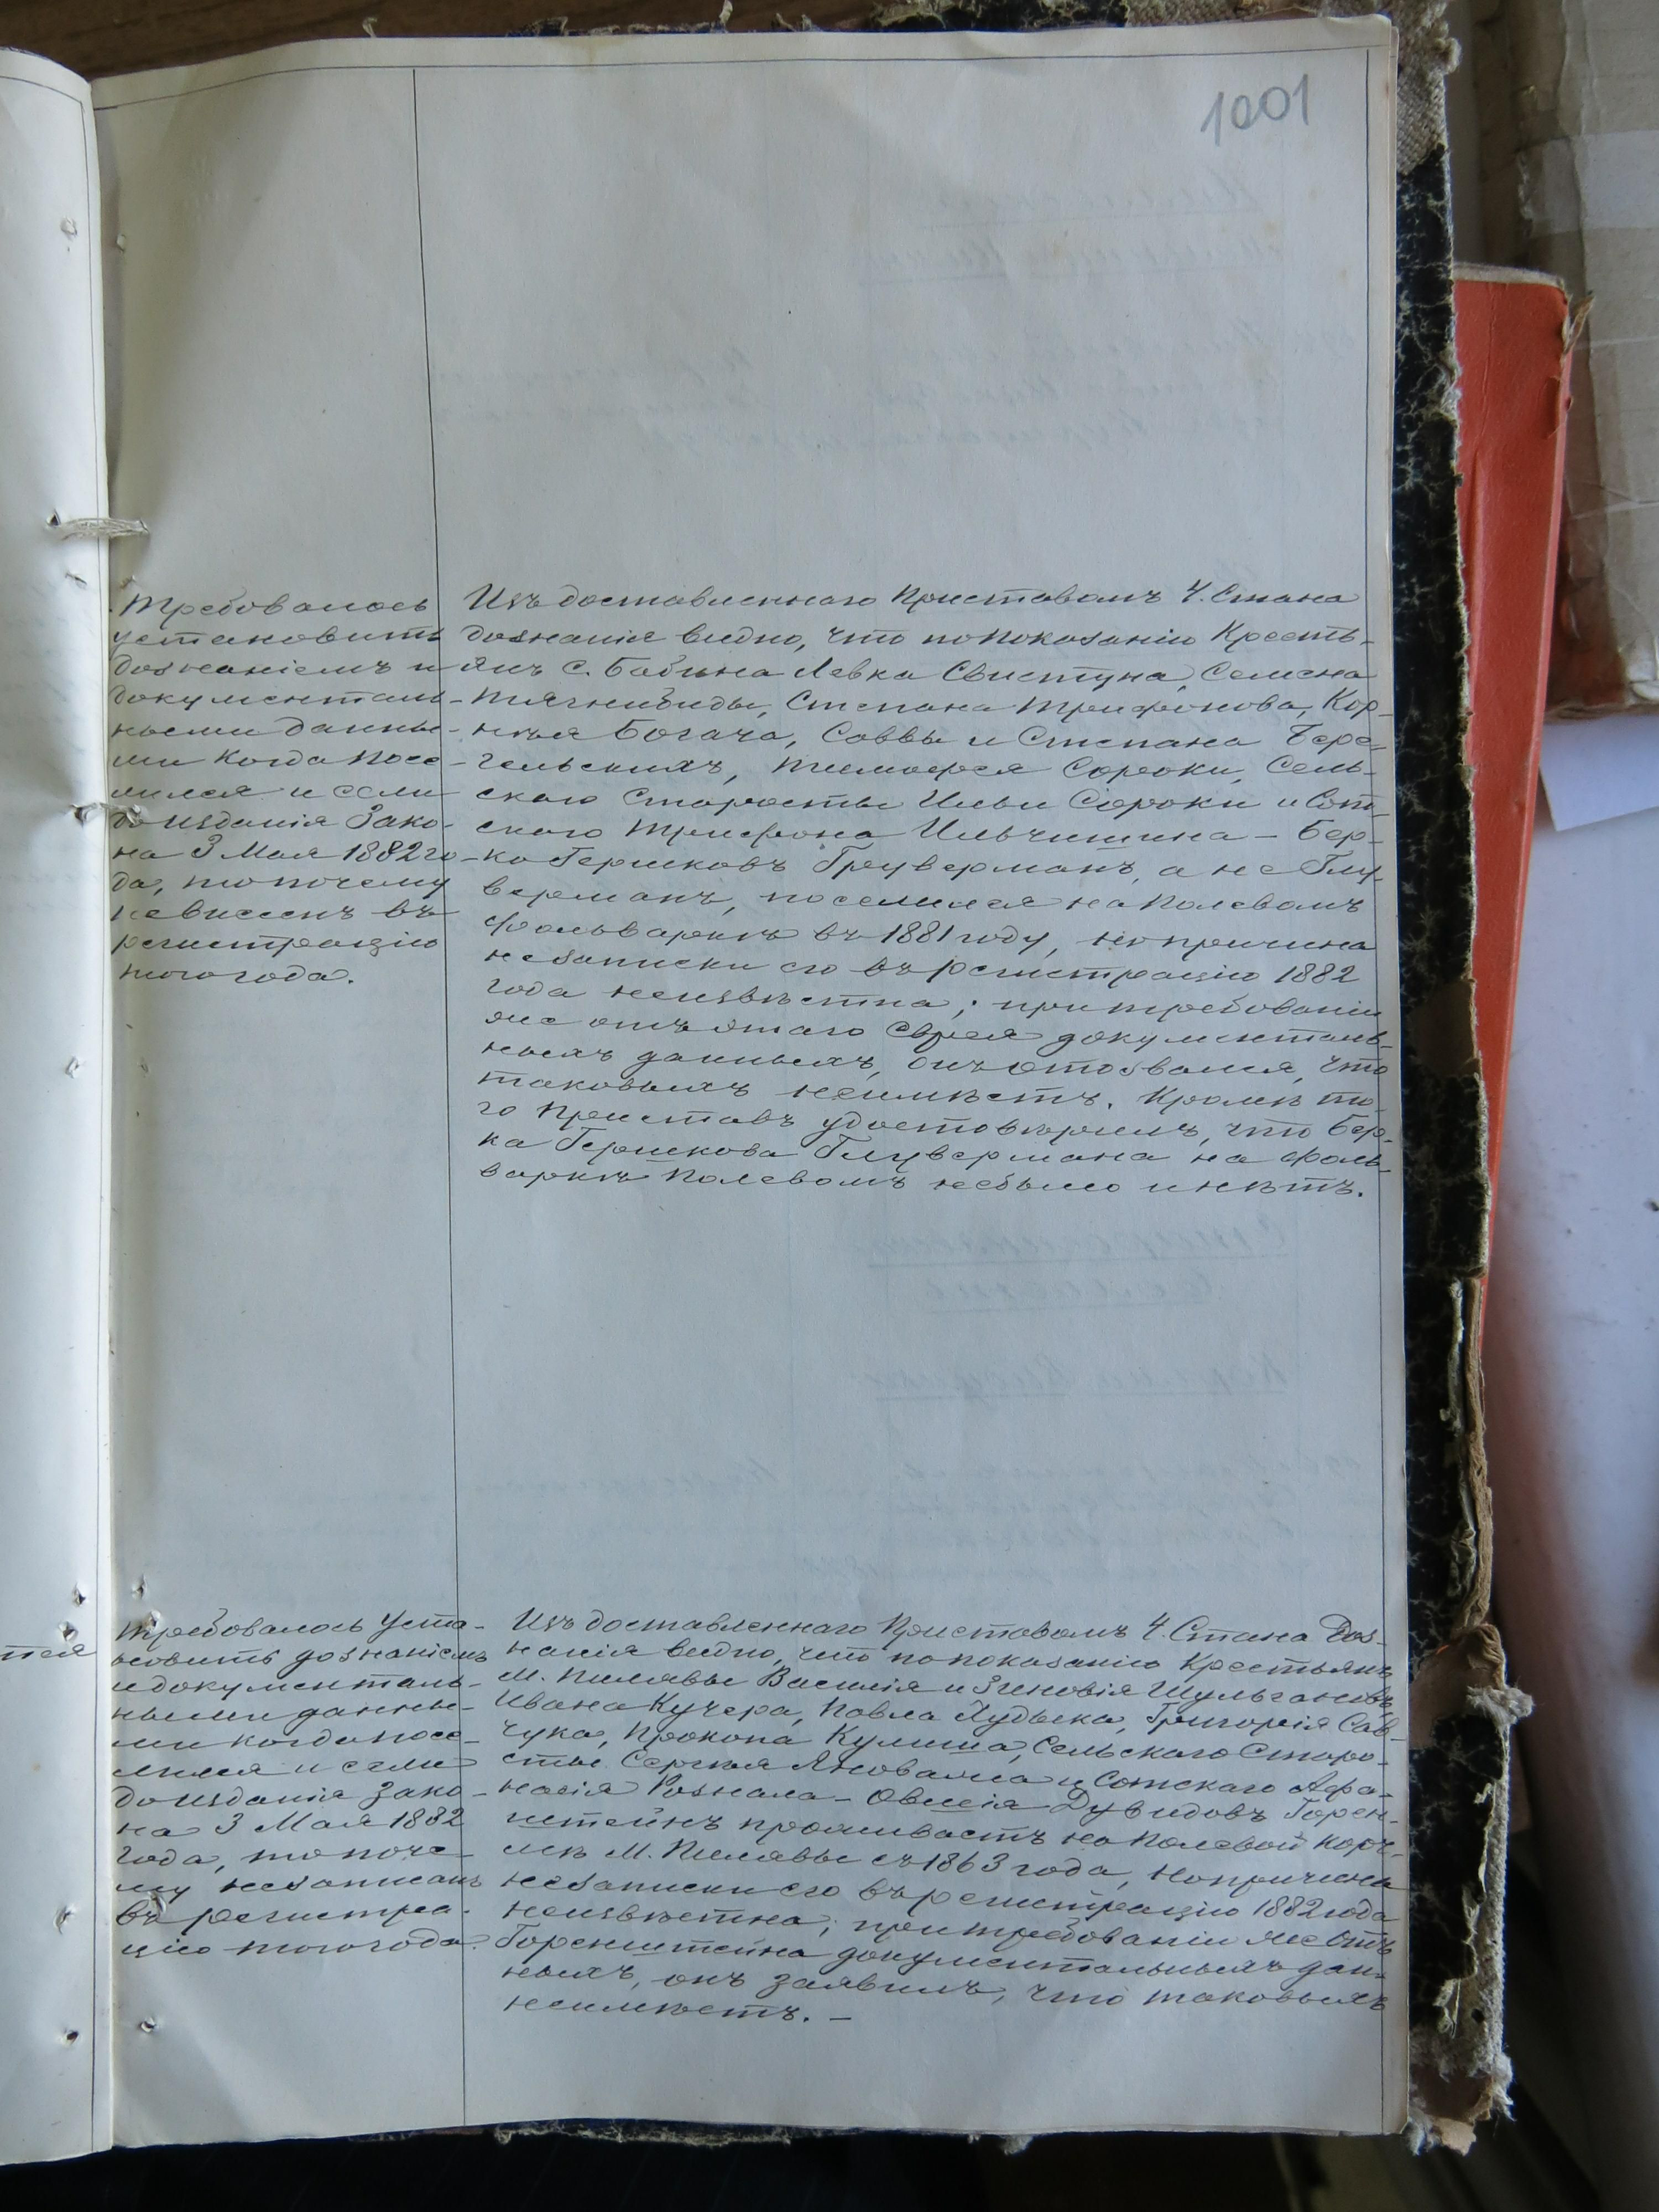 1001
Требовалось
установить
дознаніемъ и
документаль-
ными данны-
ми когда посе-
лился и если
до изданія Зако-
на 3 Мая 1882 го-
да, то почему
не внесенъ въ
регистрацію
того года.
Изъ доставленнаго Приставомъ 4. Стана
дознанія видно, что по показанію Кресть-
янъ с. Бабина Левка Свистуна, Семена
Тягнибиды, Степана Трифонова, Кор-
нѣя Богача, Саввы и Степана Бере-
гельскихъ, Тимофея Сороки, Сель-
скаго Старосты Ильи Сороки и Сот-
скаго Трифона Ильчишина - Бер-
ко Гершковъ Груверманъ, а не Глу-
верманъ, поселился на Полевомъ
фольваркѣ въ 1881 году, но причина
незаписки его въ регистрацію 1882
года неизвѣстна; при требованіи
же отъ этаго Еврея документаль-
ныхъ данныхъ, онъ отозвался, что
таковыхъ неимѣетъ. Кромѣ то-
го Приставъ удостовѣрилъ, что Бер-
ка Гершкова Глувермана на фоль-
варкѣ Полевомъ небыло и нѣтъ.
тся
Требовалось Уста-
новить дознаніемъ
и документаль-
ными данны-
ми когда посе-
лился и если
до изданія Зако-
на 3 Мая 1882
года, то поче-
му незаписанъ
въ регистра-
цію того года.
Изъ доставленнаго Приставомъ 4. Стана Доз-
нанія видно, что по показанію Крестьянъ
М. Пилявы Василія и Зиновія Шульгановъ,
Ивана Кучера, Павла Худыка, Григорія Сав-
чука, Прокопа Кулиша, Сельскаго Старо-
сты Сергѣя Яновала и Сотскаго Афа-
насія Рознала - Овшія Дувидовъ Горен-
штейнъ проживаетъ на Полевой корч-
мѣ М. Пилявы съ 1863 года, но причина
незаписки его въ регистрацію 1882 года
неизвѣстна; при требованіи же отъ
Горенштейна документальныхъ дан-
ныхъ, онъ заявилъ, что таковыхъ
неимѣетъ. -